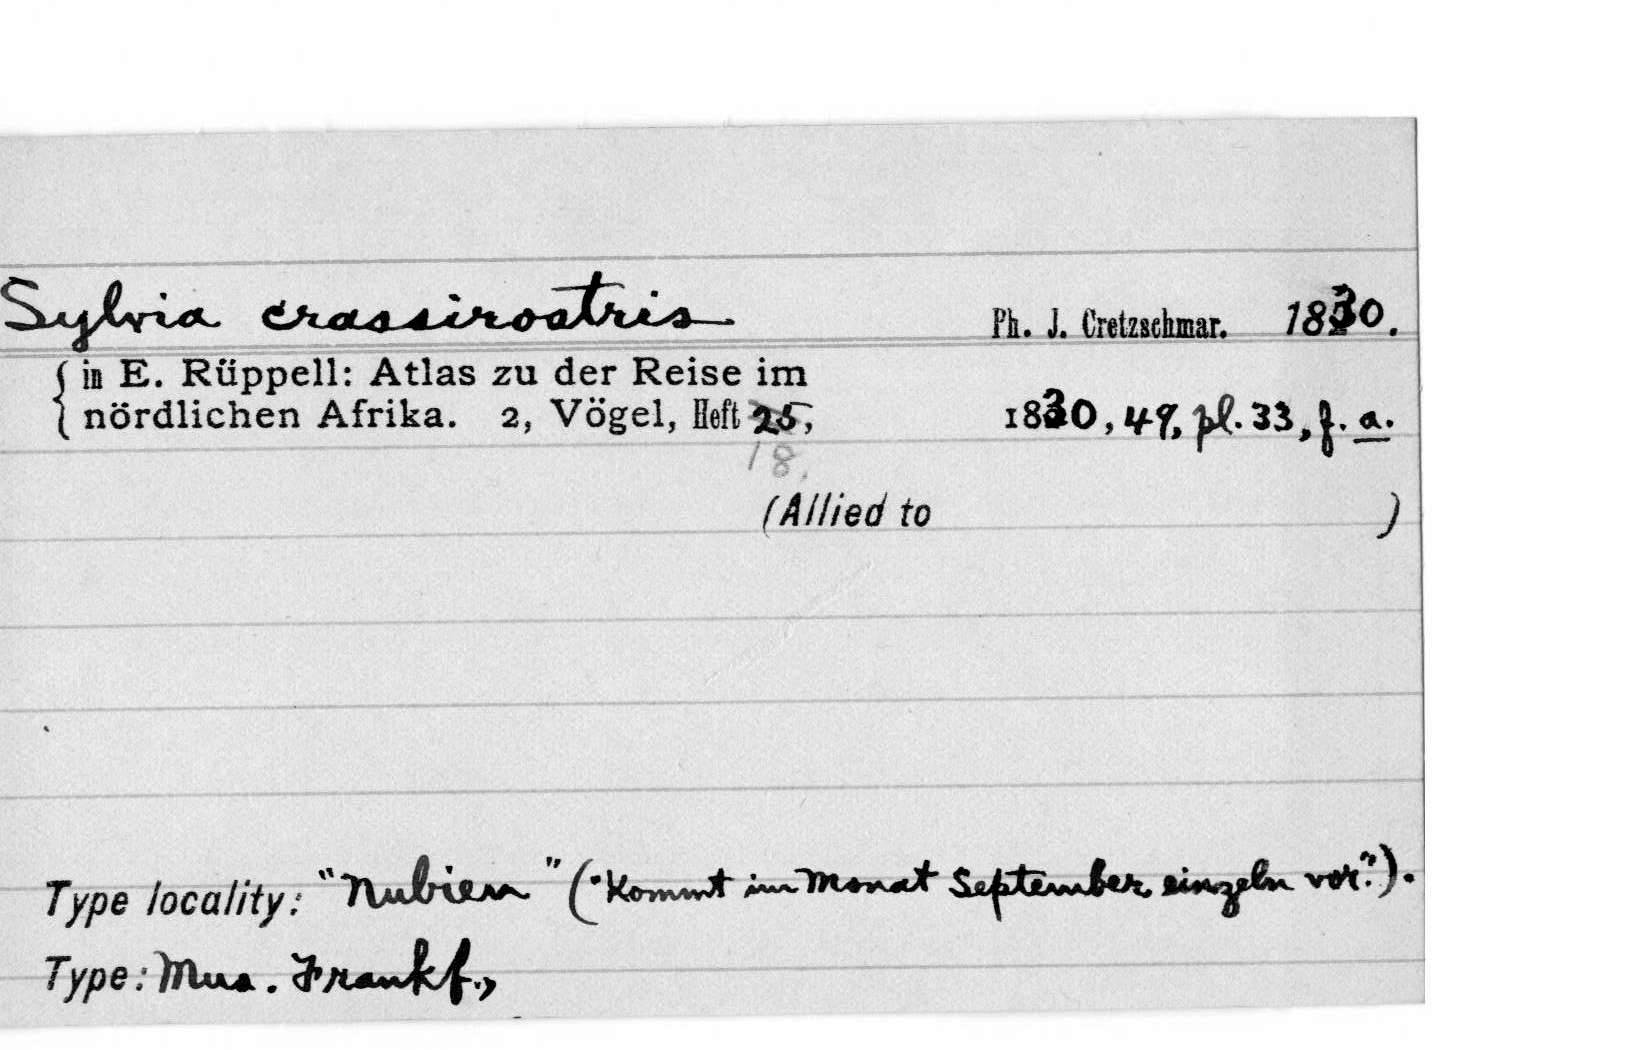 Sylvia crassirostris Ph. J. Cretzschmar. 1830.
{ in E. Rüppell: Atlas zu der Reise im
nördlichen Afrika. 2, Vögel, Heft 25, 1830, 49, pl. 33, f. a.
18.
(Allied to )
Type locality: "Nubien" ("Kommt im Monat September einzeln vor.").
Type: Mus. Frankf.,